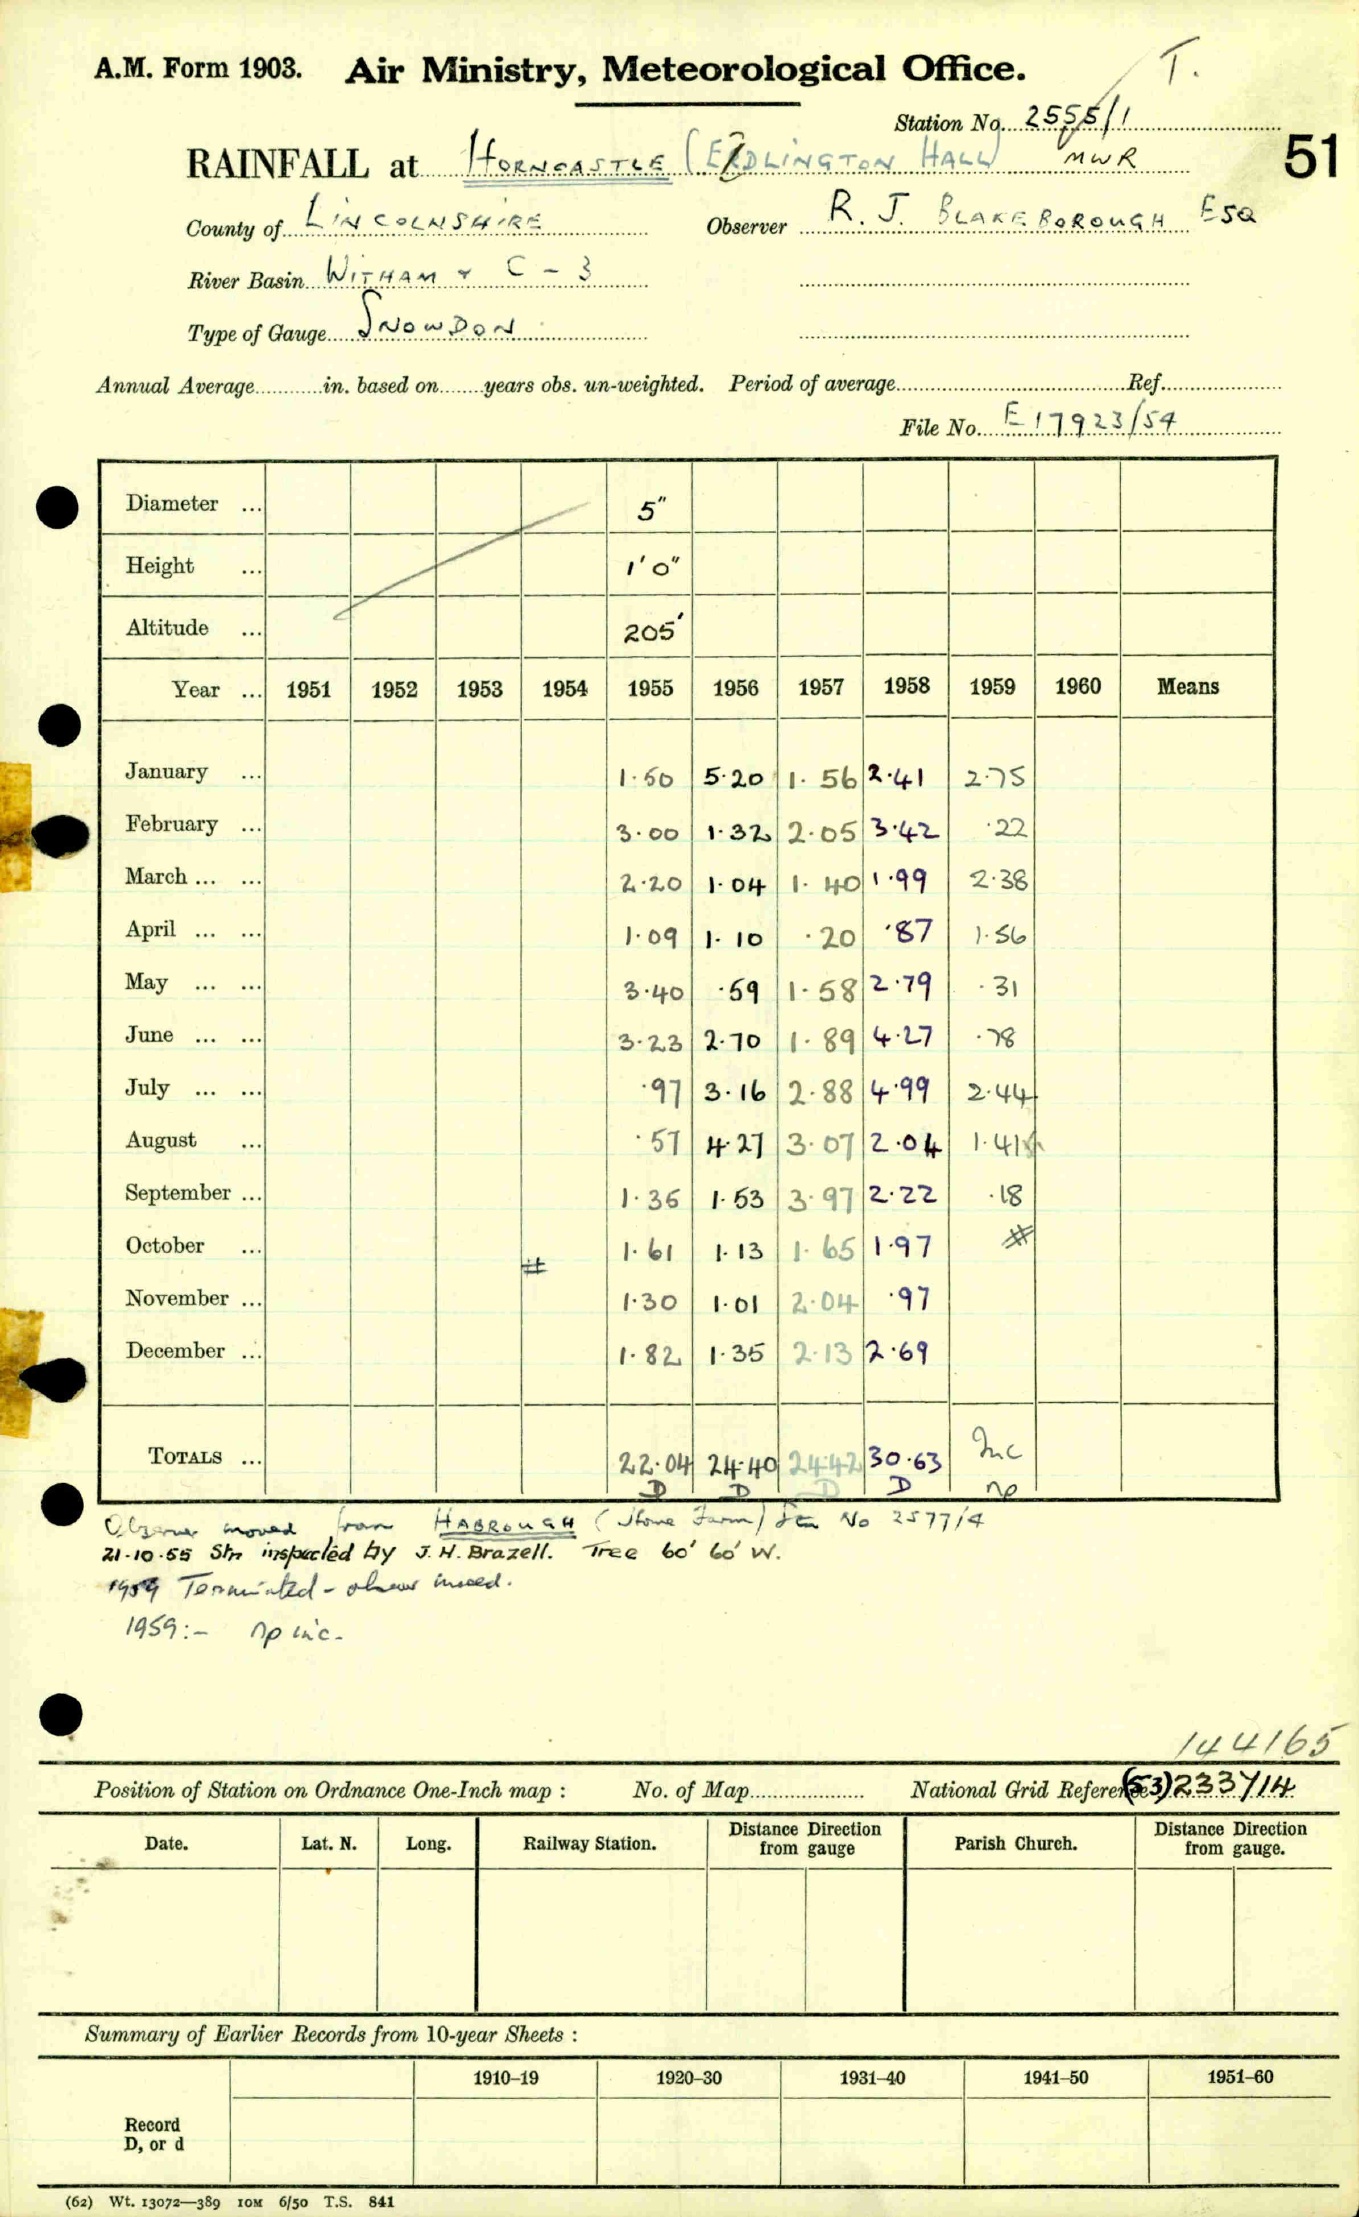 T.
A.M. Form 1903. Air Ministry, Meteorological Office.
Station No. 2555/1
RAINFALL at HORNCASTLE (EDLINGTON HALL) MWR 51
County of LINCOLNSHIRE Observer R. J. BLAKEBOROUGH ESQ
River Basin WITHAM & C - 3
Type of Gauge SNOWDON
Annual Average..........in. based on.......years obs. un-weighted. Period of average.......... Ref..........
File No. E17923/54
Diameter ... 5"
Height ... 1'0"
Altitude ... 205'
Year ... 1951 1952 1953 1954 1955 1956 1957 1958 1959 1960 Means
January ... 1.50 5.20 1.56 2.41 2.75
February ... 3.00 1.32 2.05 3.42 .22
March ... ... 2.20 1.04 1.40 1.99 2.38
April ... ... 1.09 1.10 .20 .87 1.56
May ... ... 3.40 .59 1.58 2.79 .31
June ... ... 3.23 2.70 1.89 4.27 .78
July ... ... .97 3.16 2.88 4.99 2.44
August ... .57 4.27 3.07 2.04 1.41
September ... 1.35 1.53 3.97 2.22 .18
October ... # 1.61 1.13 1.65 1.97 #
November ... 1.30 1.01 2.04 .97
December ... 1.82 1.35 2.13 2.69
TOTALS ... 22.04 24.40 24.42 30.63 Inc
D D D D np
Observer moved from HABROUGH (Stone Farm) Stn No 2577/4
21-10-55 Stn inspected by J. H. Brazell. Tree 60' 60' W.
1959 Terminated - observer moved.
1959:- np inc.
144165
Position of Station on Ordnance One-Inch map : No. of Map.......... National Grid Reference (53)233714
Date. Lat. N. Long. Railway Station. Distance Direction from gauge Parish Church. Distance Direction from gauge.
Summary of Earlier Records from 10-year Sheets :
1910–19 1920–30 1931–40 1941–50 1951–60
Record
D, or d
(62) Wt. 13072—389 10M 6/50 T.S. 841